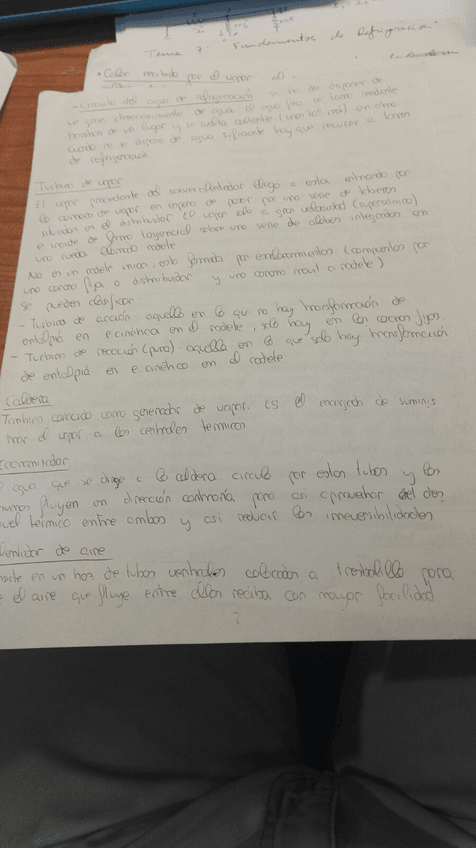 Tema 7: "Fundamentos de Refrigeración"
• Calor recibido por el vapor
- Circuito del agua de refrigeración
un gran almacenamiento de agua. El agua fría se toma mediante
bombas de un lugar y se vuelve caliente en otro
cuando no se dispone de agua suficiente hay que recurrir a torres
de refrigeración
Turbina de vapor
El vapor procedente del sobrecalentador llega a esta entrando por
la cámara de vapor en espera de pasar por una serie de toberas
en el distribuidor. El vapor sale a gran velocidad (supersónica)
e incide de forma tangencial sobre una serie de álabes integrados en
una rueda llamada rodete
No es un rodete único, está formada por escalonamientos (compuestos por
una corona fija o distribuidor y una corona móvil o rodete)
Se pueden clasificar:
- Turbina de acción: aquella en la que no hay transformación de
entalpía en e.cinética en el rodete, solo hay en las coronas fijas.
- Turbina de reacción (pura): aquella en la que solo hay transformación
de entalpía en e cinética en el rodete
Caldera
También conocida como generador de vapor. Es el encargado de suminis
trar el vapor a las centrales térmicas
Economizador
agua que se dirige a la caldera circula por estos tubos y los
humos fluyen en dirección contraria para así aprovechar el des
nivel térmico entre ambos y así reducir las irreversibilidades
de aire
en un haz de tubos verticales colocados a tresbolillo para
el aire que fluye entre ellos reciba con mayor facilidad